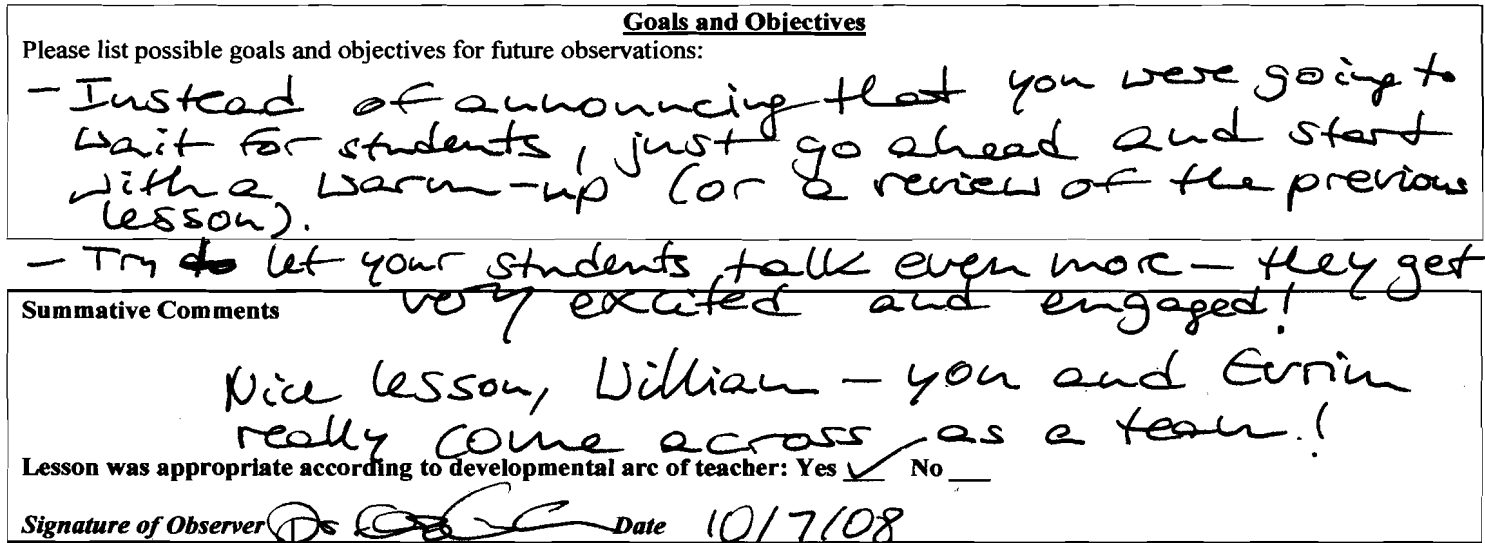 Goals and Objectives
Please list possible goals and objectives for future observations:
- Instead of announcing that you were going to
wait for students, just go ahead and start
with a warm-up (or a review of the previous
lesson).
- Try to let your students talk even more - they get
very excited and engaged!
Summative Comments
Nice lesson, William - you and Evrim
really come across as a team!
Lesson was appropriate according to developmental arc of teacher: Yes ✓ No __
Signature of Observer Date 10/7/08